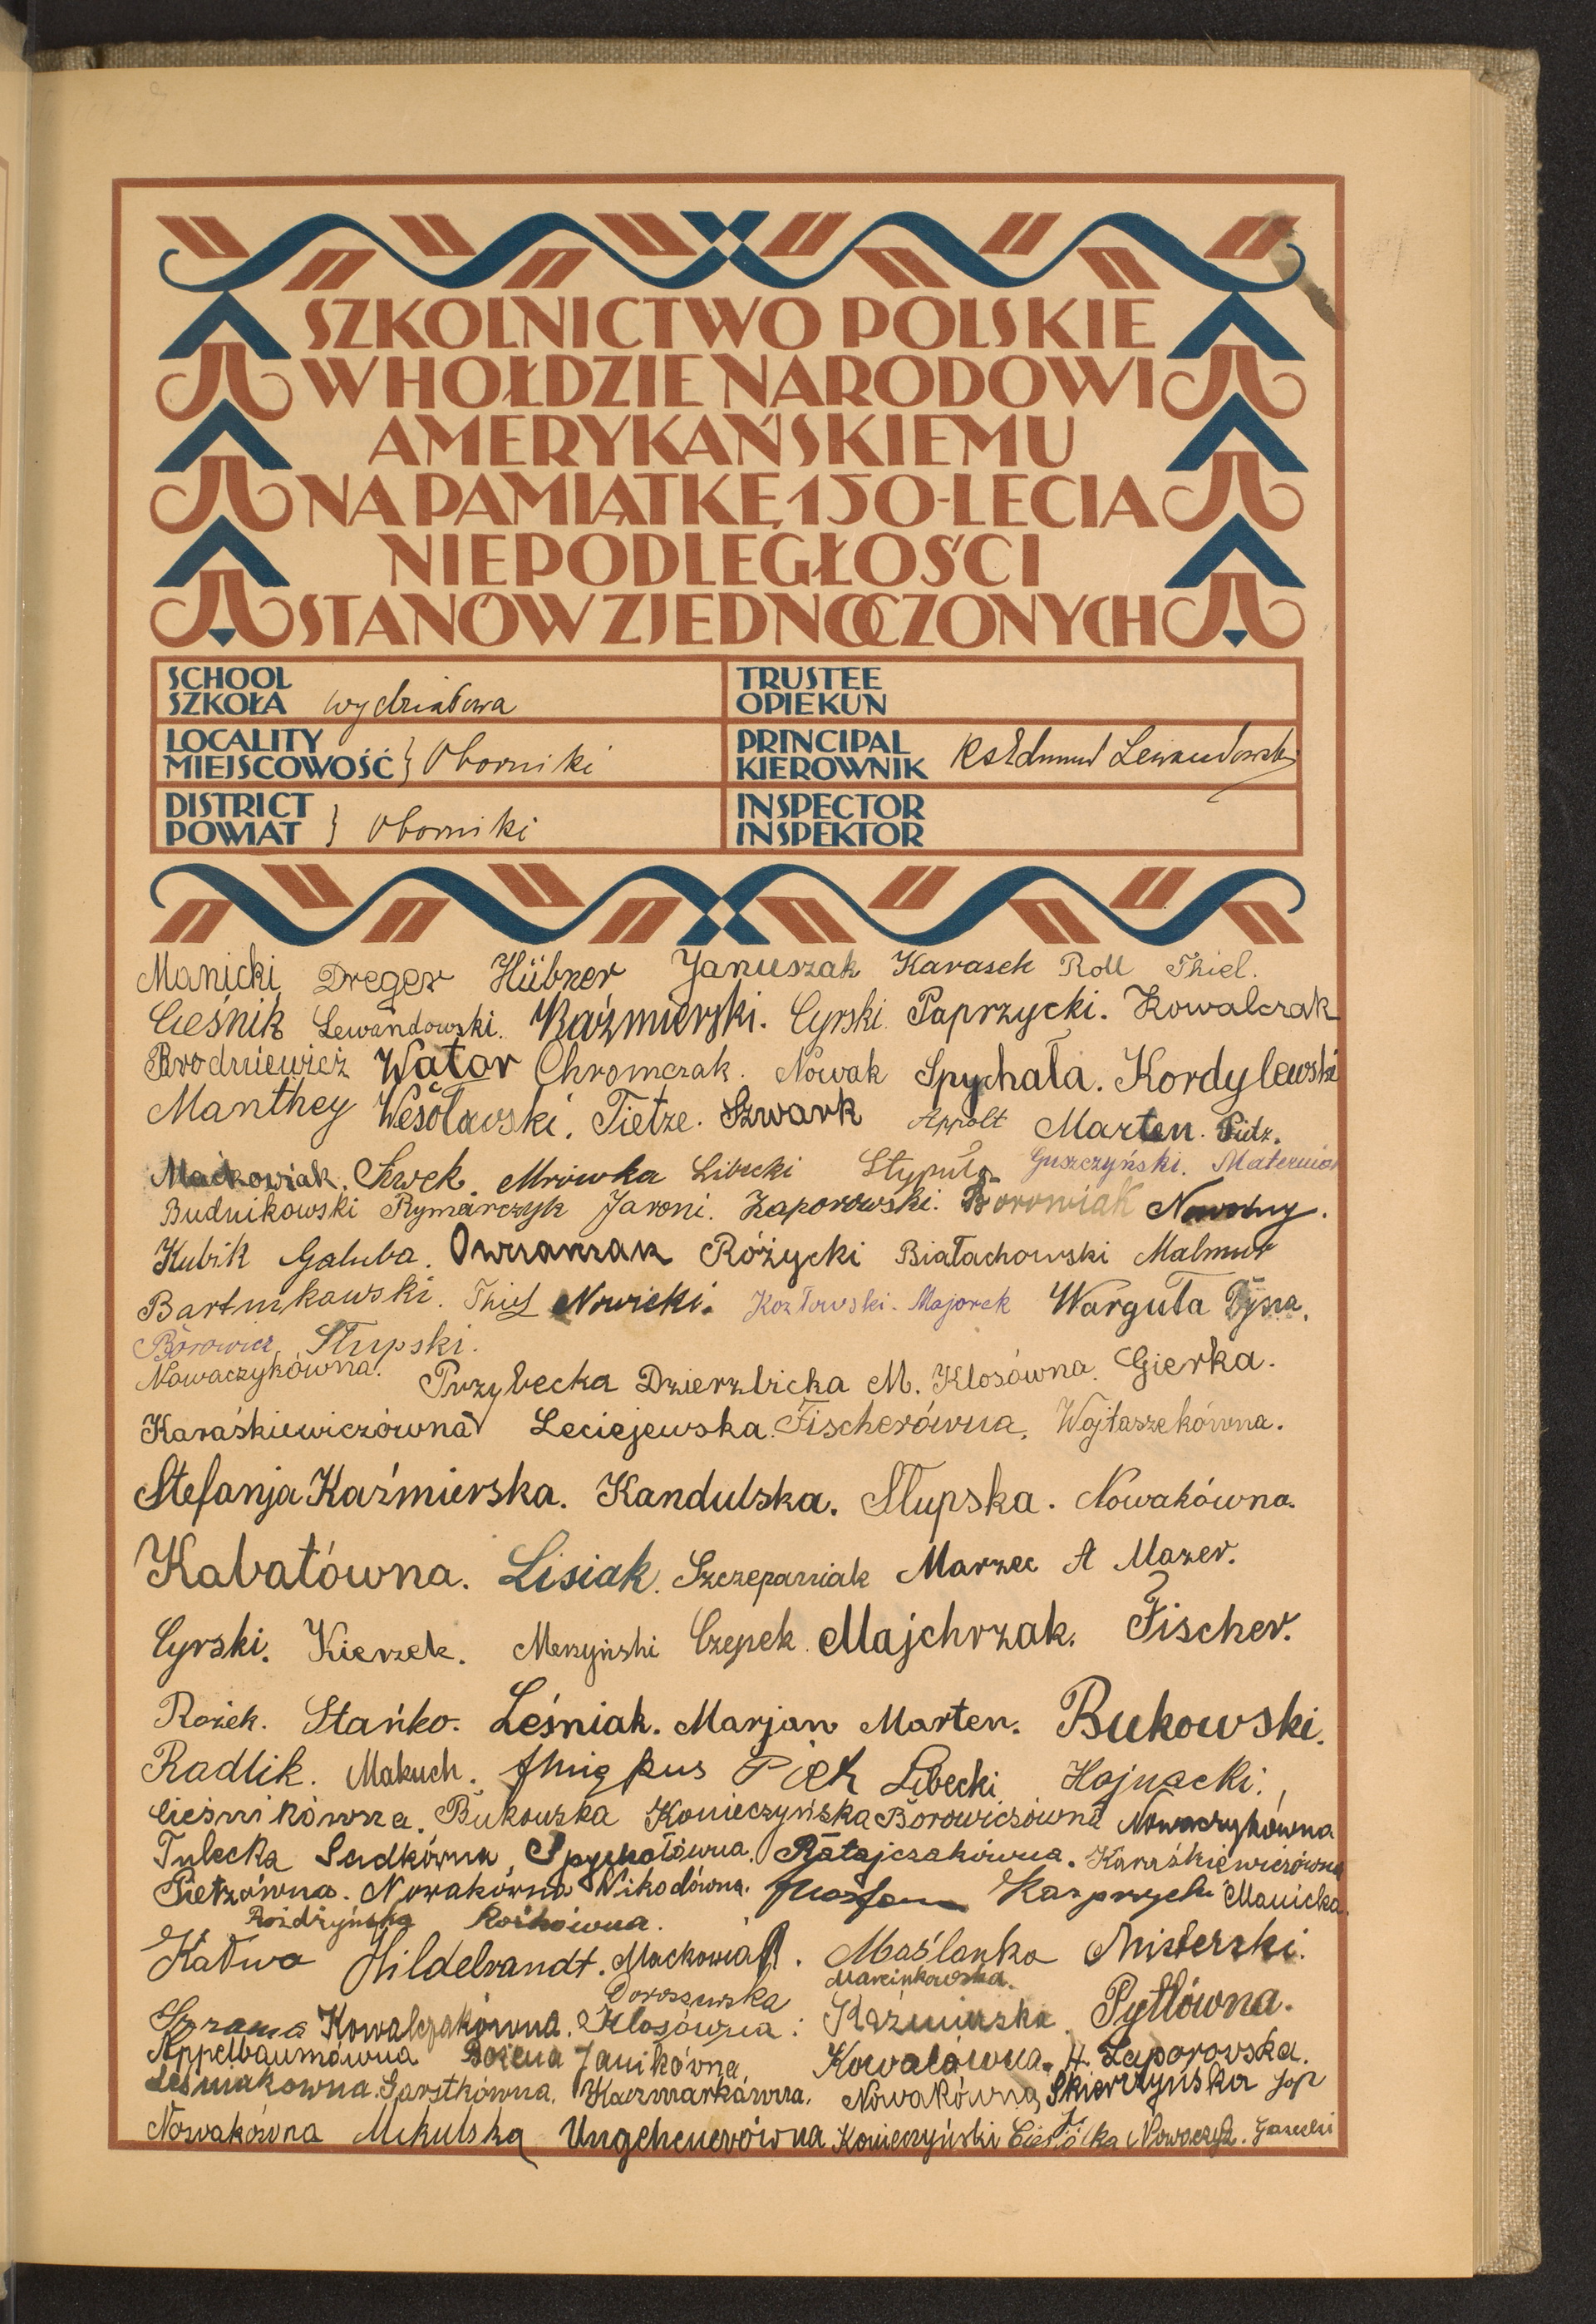 SZKOLNICTWO POLSKIE
W HOŁDZIE NARODOWI
AMERYKAŃSKIEMU
NA PAMIĄTKĘ 150-LECIA
NIEPODLEGŁOŚCI
STANÓW ZJEDNOCZONYCH
SCHOOL
SZKOŁA wydziałowa
TRUSTEE
OPIEKUN
LOCALITY
MIEJSCOWOŚĆ } Oborniki
PRINCIPAL
KIEROWNIK Ks Edmund Lewandowski
DISTRICT
POWIAT } Oborniki
INSPECTOR
INSPEKTOR
Manicki Dreger Hübner Januszak Karasek Roll Thiel.
Cieśnik Lewandowski. Kaźmierski. Cyrski Paprzycki. Kowalczak
Brodniewicz Wator Chromczak. Nowak Spychała. Kordylewski
Manthey Wesołowski. Tietze. Szwark Appolt Marten. Pidz.
Maćkowiak. Siwek. Mrówka Libecki Stypuła Guszczyński. Materna
Budnikowski Rymarczyk Jaroni. Zaporowski. Borowiak Nowotny.
Kubik Galuba. Owczarzak Różycki Białachowski Malmur
Bartnikowski. Thiel Nowicki. Kozłowski. Majorek Warguła
Borowicz Słupski.
Nowaczykówna. Przybecka Dzierzbicka M. Klosówna. Gierka.
Karaśkiewiczówna Leciejewska. Fischerówna. Wojtaszekówna.
Stefanja Kaźmierska. Kandulska. Słupska. Nowakówna.
Kabatówna. Lisiak. Szczepaniak Marzec A Mazer.
Cyrski. Kierzek. Merzyński Czepek Majchrzak. Fischer.
Rożek. Stańko. Leśniak. Marjan Marten. Bukowski.
Radlik. Makuch. Piek Libecki Hojnacki.
Cieśnikówna. Bukowska Konieczyńska Borowiczówna Nowaczykówna
Tulecka Sadkówna Spychałówna. Ratajczakówna. Karaśkiewiczówna
Pietzówna. Nowakówna Nikodówna. Kasprzycki Manicka.
Rożdżyńska Rośkówna.
Kałwa Hildebrandt. Mackowiak. Maślanka Misterski.
Doroszewska Marcinkowska.
Szrama Kowalczakówna. Klosówna: Kaźmierska. Pytlówna.
Appelbaumówna Bożena Janikówna Kowalówna. H. Zaporowska.
Leśniakówna. Garstkówna. Kaczmarkówna. Nowakówna, Skierzyńska Jop
Nowakówna Mikulska Ungeheuerówna Konieczyński Cieślicka Nowaczyk.